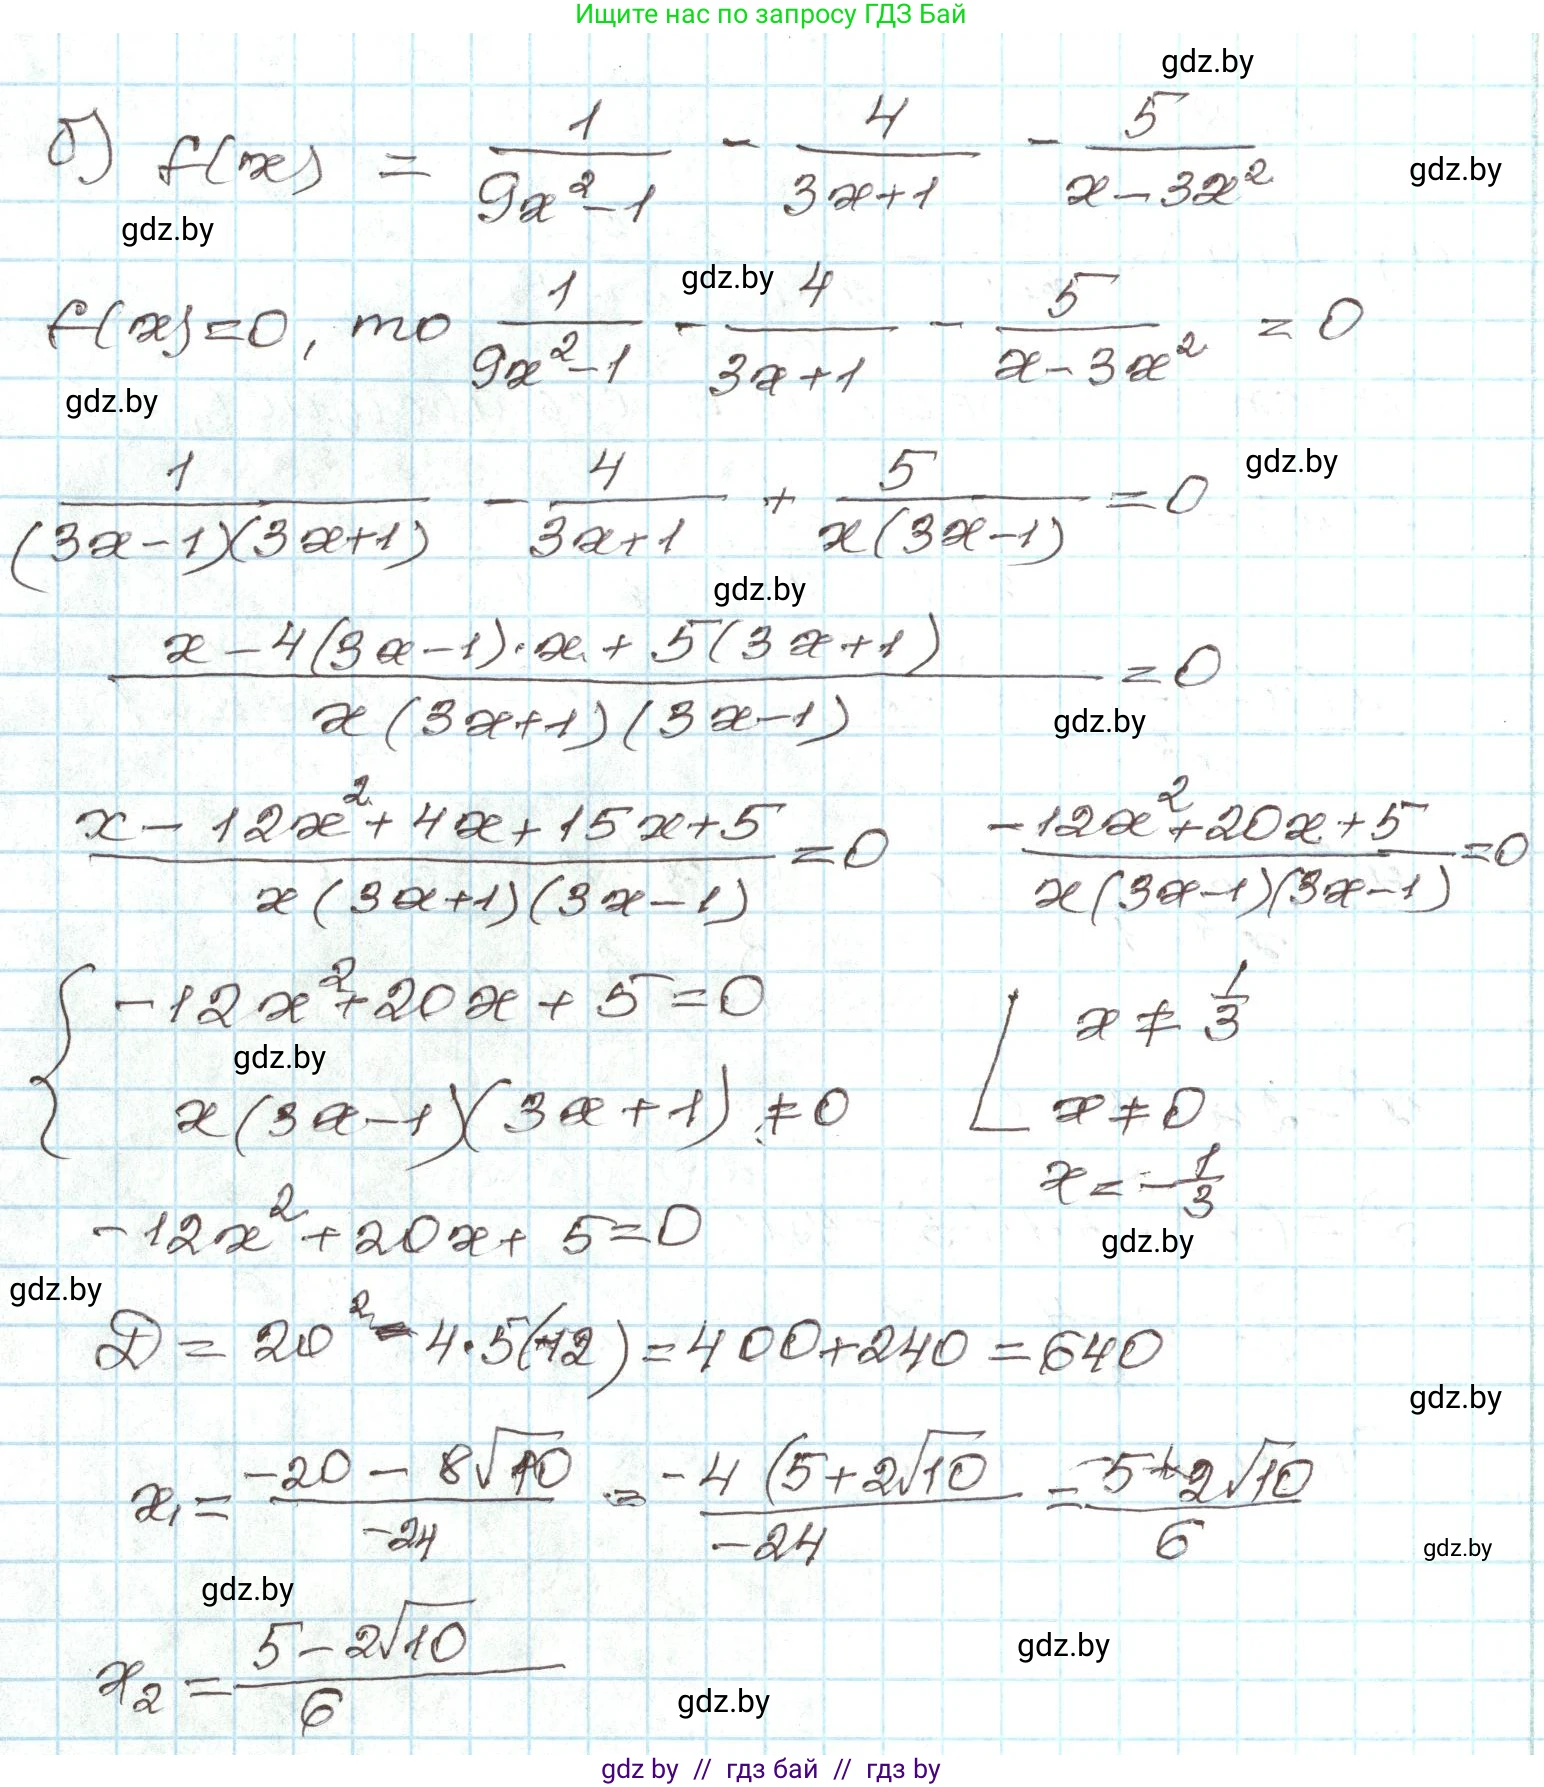 Ищите нас по запросу ГДЗ Бай
gdz.by
б) f(x) = 1/(9x²-1) - 4/(3x+1) - 5/(x-3x²)
gdz.by
gdz.by
gdz.by
f(x)=0, то 1/(9x²-1) - 4/(3x+1) - 5/(x-3x²) = 0
gdz.by
gdz.by
1/((3x-1)(3x+1)) - 4/(3x+1) + 5/(x(3x-1)) = 0
gdz.by
(x-4(3x-1)·x+5(3x+1))/(x(3x+1)(3x-1)) = 0
gdz.by
(x-12x²+4x+15x+5)/(x(3x+1)(3x-1)) = 0 (-12x²+20x+5)/(x(3x-1)(3x-1)) = 0
{ -12x²+20x+5=0 [ x ≠ 1/3
gdz.by
x(3x-1)(3x+1) ≠ 0 x ≠ 0
x = -1/3
-12x²+20x+5=0
gdz.by
gdz.by
D = 20² - 4·5(-12) = 400+240 = 640
gdz.by
x₁ = (-20 - 8√10)/(-24) = (-4(5+2√10)/(-24) = (5+2√10)/6
gdz.by
gdz.by
x₂ = (5-2√10)/6
gdz.by
gdz.by
gdz by // гдз бай // гдз by